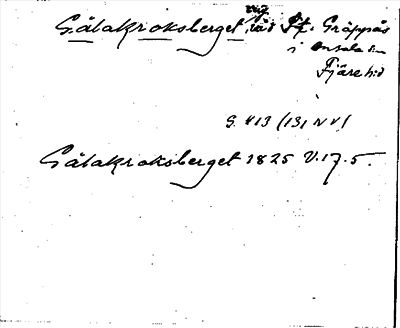 Gåtakroksberget, vid St. Gräppås
i Onsala sn
Fjäre hd
G. 413 (131 NV)
Gåtakroksberget 1825 V.17.5.